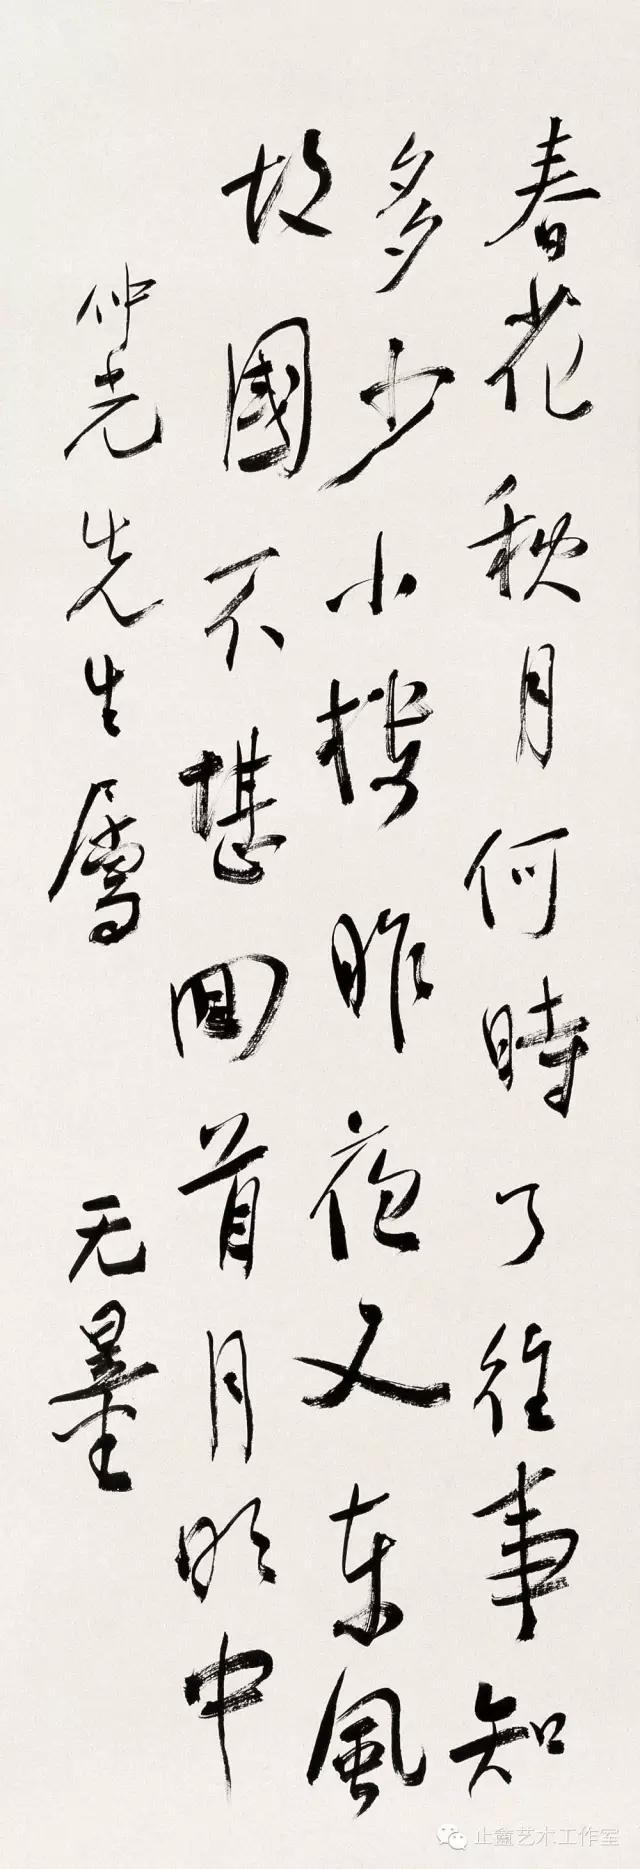 春花秋月何時了往事知
多少小樓昨夜又東風
故國不堪回首月明中
仲光先生屬
无量
止龕艺术工作室